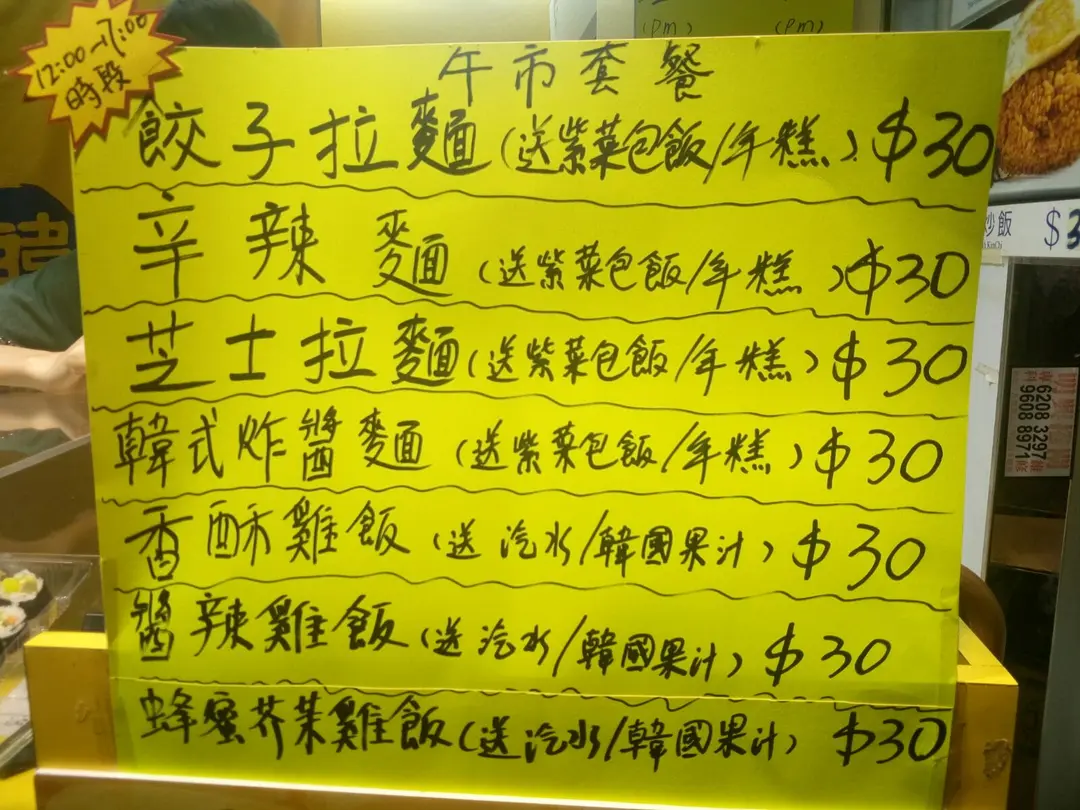 (pm) (pm)
12:00→7:00
時段
午市套餐
餃子拉麵(送紫菜包飯/年糕) $30
辛辣麵(送紫菜包飯/年糕) $30
芝士拉麵(送紫菜包飯/年糕) $30
韓式炸醬麵(送紫菜包飯/年糕) $30
香酥雞飯(送汽水/韓國果汁) $30
醬辣雞飯(送汽水/韓國果汁) $30
蜂蜜芥茉雞飯(送汽水/韓國果汁) $30
韓
炒飯 $3
6208 3297
9608 8971